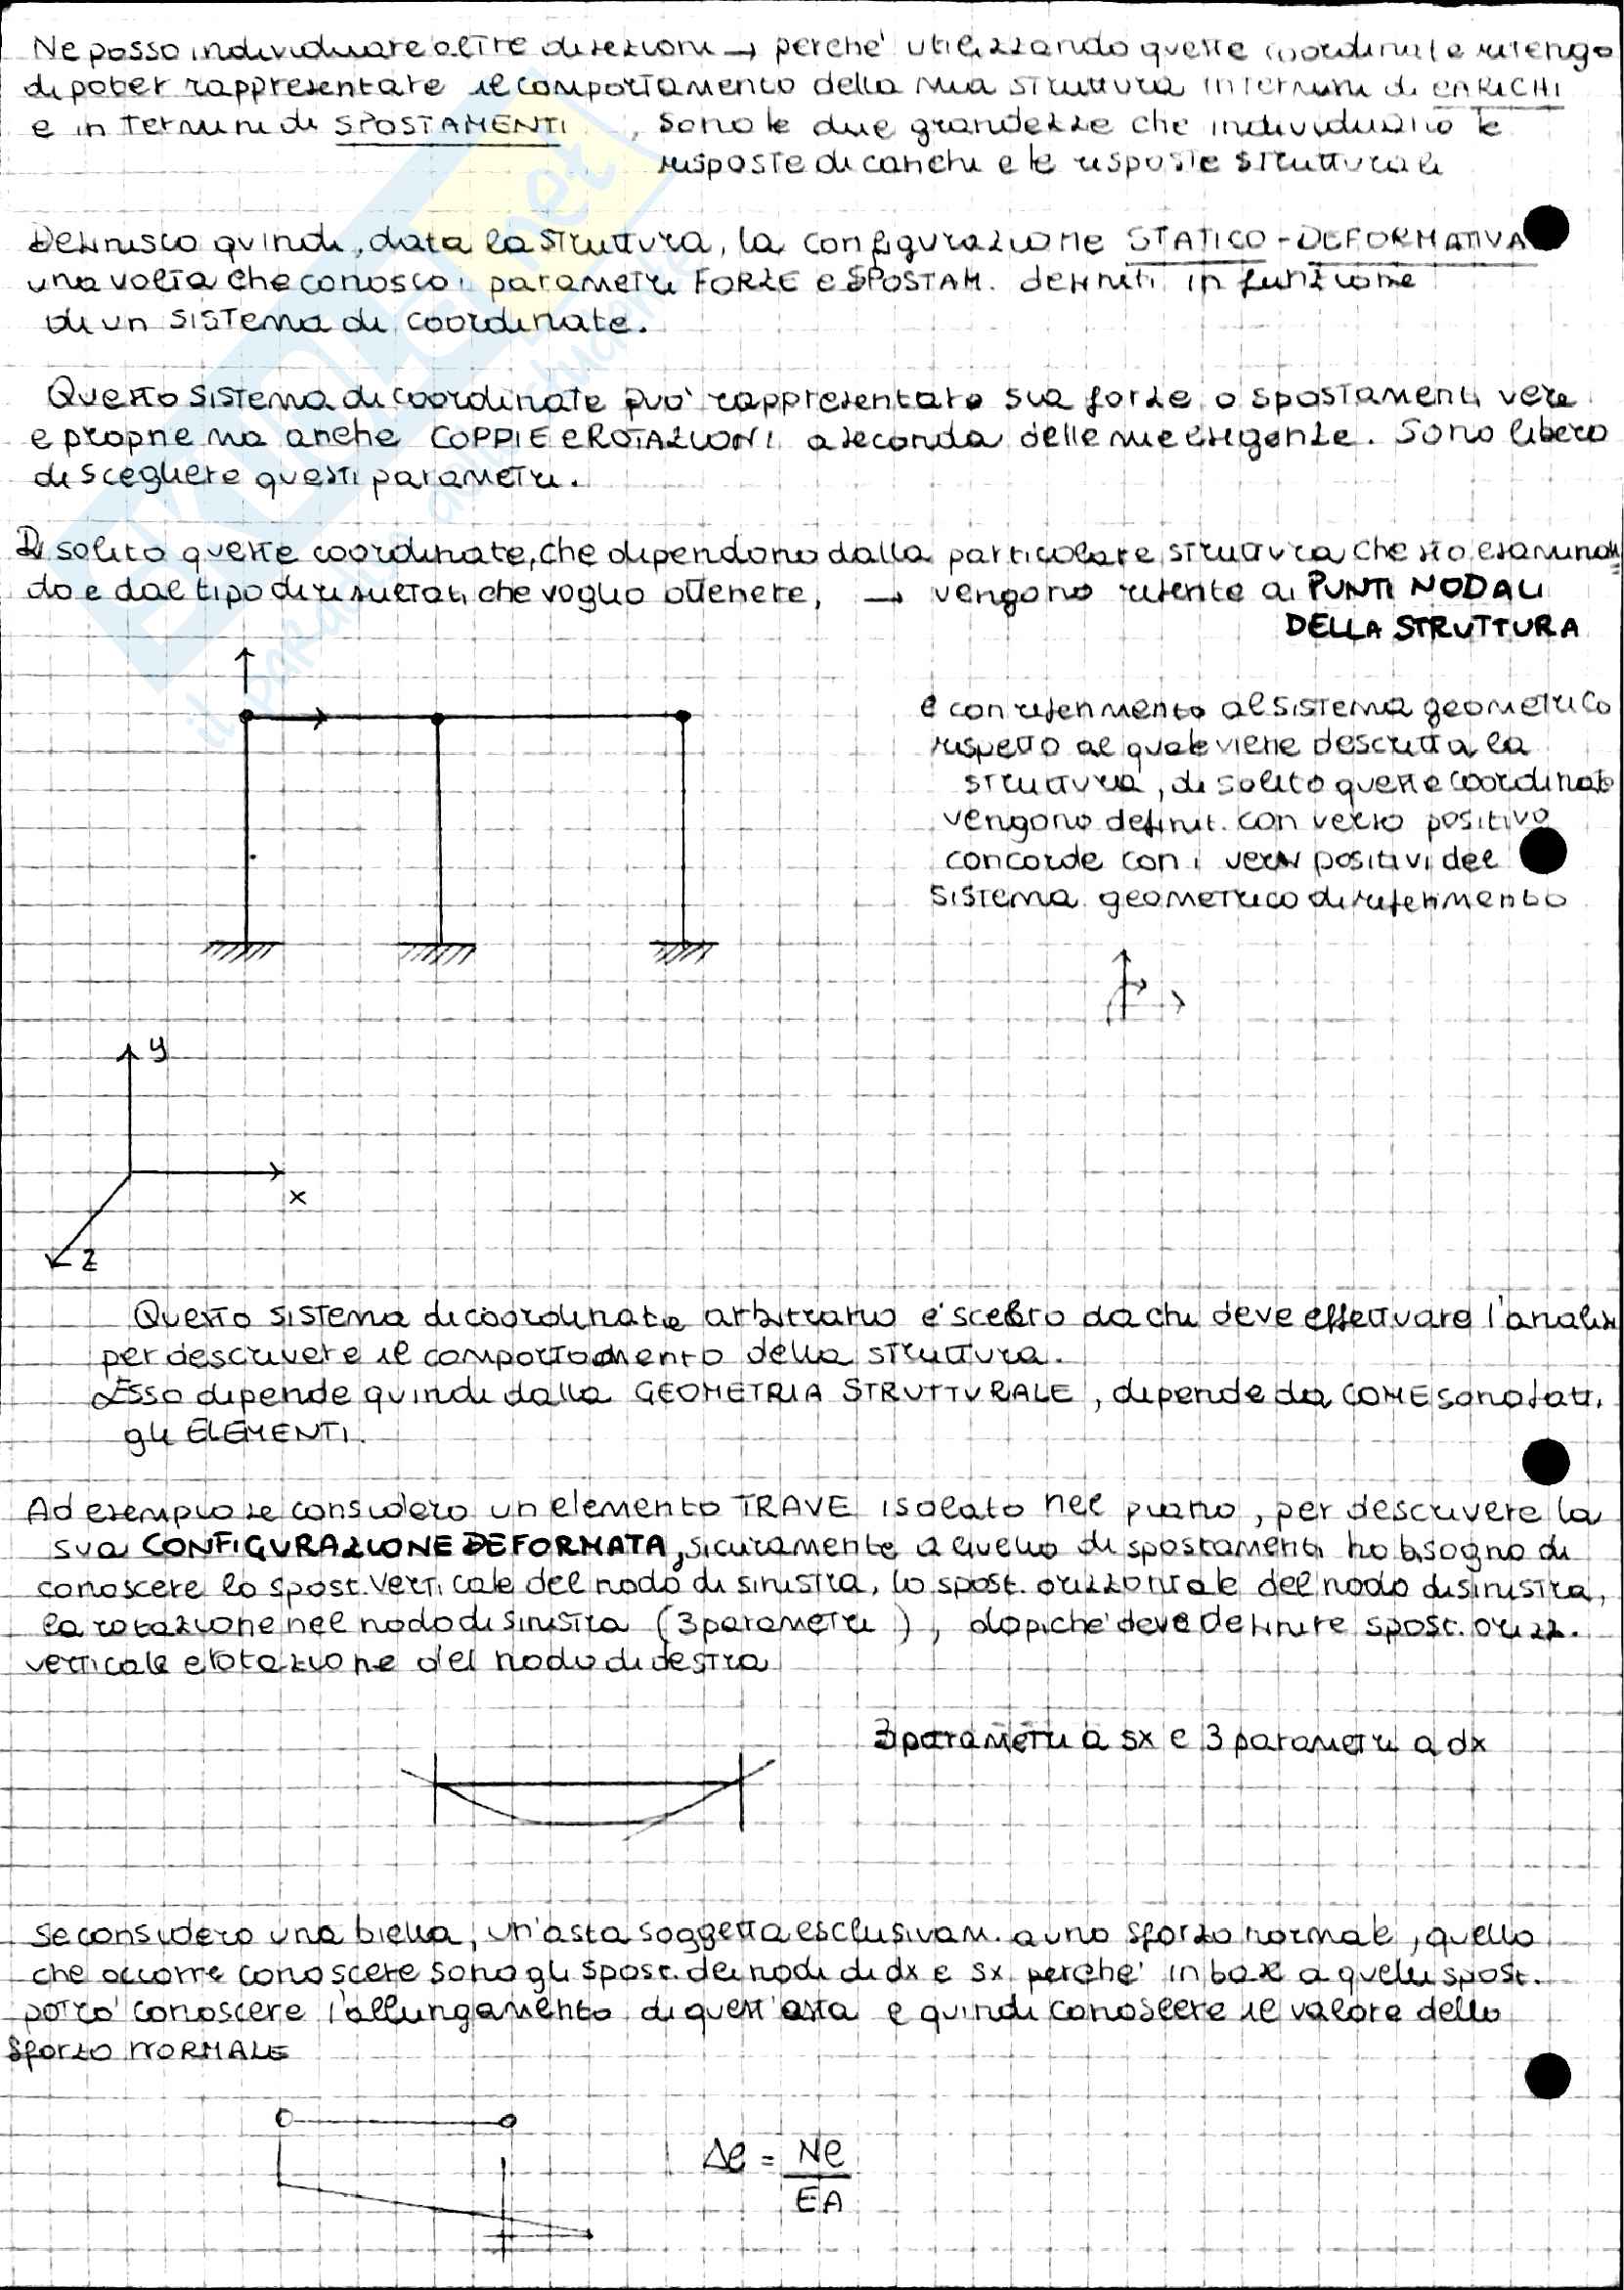 Ne posso individuare altre direzioni → perche' utilizzando queste coordinate ritengo
di poter rappresentare il comportamento della mia struttura in termini di CARICHI
e in termini di SPOSTAMENTI, sono le due grandezze che individuano le
risposte di carichi e le risposte strutturali
Definisco quindi, data la struttura, la configurazione STATICO-DEFORMATIVA
una volta che conosco i parametri FORZE e SPOSTAM. definiti in funzione
di un sistema di coordinate.
Questo sistema di coordinate puo' rappresentare sia forze o spostamenti vere
e proprie ma anche COPPIE e ROTAZIONI a seconda delle mie esigenze. Sono libero
di scegliere questi parametri.
Di solito queste coordinate, che dipendono dalla particolare struttura che sto esaminan
do e dal tipo di risultati che voglio ottenere, → vengono riferite ai PUNTI NODALI
DELLA STRUTTURA
e con riferimento al sistema geometrico
rispetto al quale viene descritta la
struttura, di solito queste coordinate
vengono definit. con verso positivo
concorde con i versi positivi del
sistema geometrico di riferimento
y
x
z
Questo sistema di coordinate arbitrario e' scelto da chi deve effettuare l'analisi
per descrivere il comportamento della struttura.
Esso dipende quindi dalla GEOMETRIA STRUTTURALE, dipende da COME sono fatti
gli ELEMENTI.
Ad esempio se considero un elemento TRAVE isolato nel piano, per descrivere la
sua CONFIGURAZIONE DEFORMATA, sicuramente a livello di spostamenti ho bisogno di
conoscere lo spost. verticale del nodo di sinistra, lo spost. orizzontale del nodo di sinistra,
la rotazione nel nodo di sinistra (3 parametri), dopiche' deve definire spost. orizz.
verticale e rotazione del nodo di destra
3 parametri a sx e 3 parametri a dx
Se considero una biella, un'asta soggetta esclusivam. a uno sforzo normale, quello
che occorre conoscere sono gli spost. dei nodi di dx e sx perche' in base a quelli spost.
potro' conoscere l'allungamento di quest'asta e quindi conoscere il valore dello
sforzo NORMALE
Δl = Nl
EA